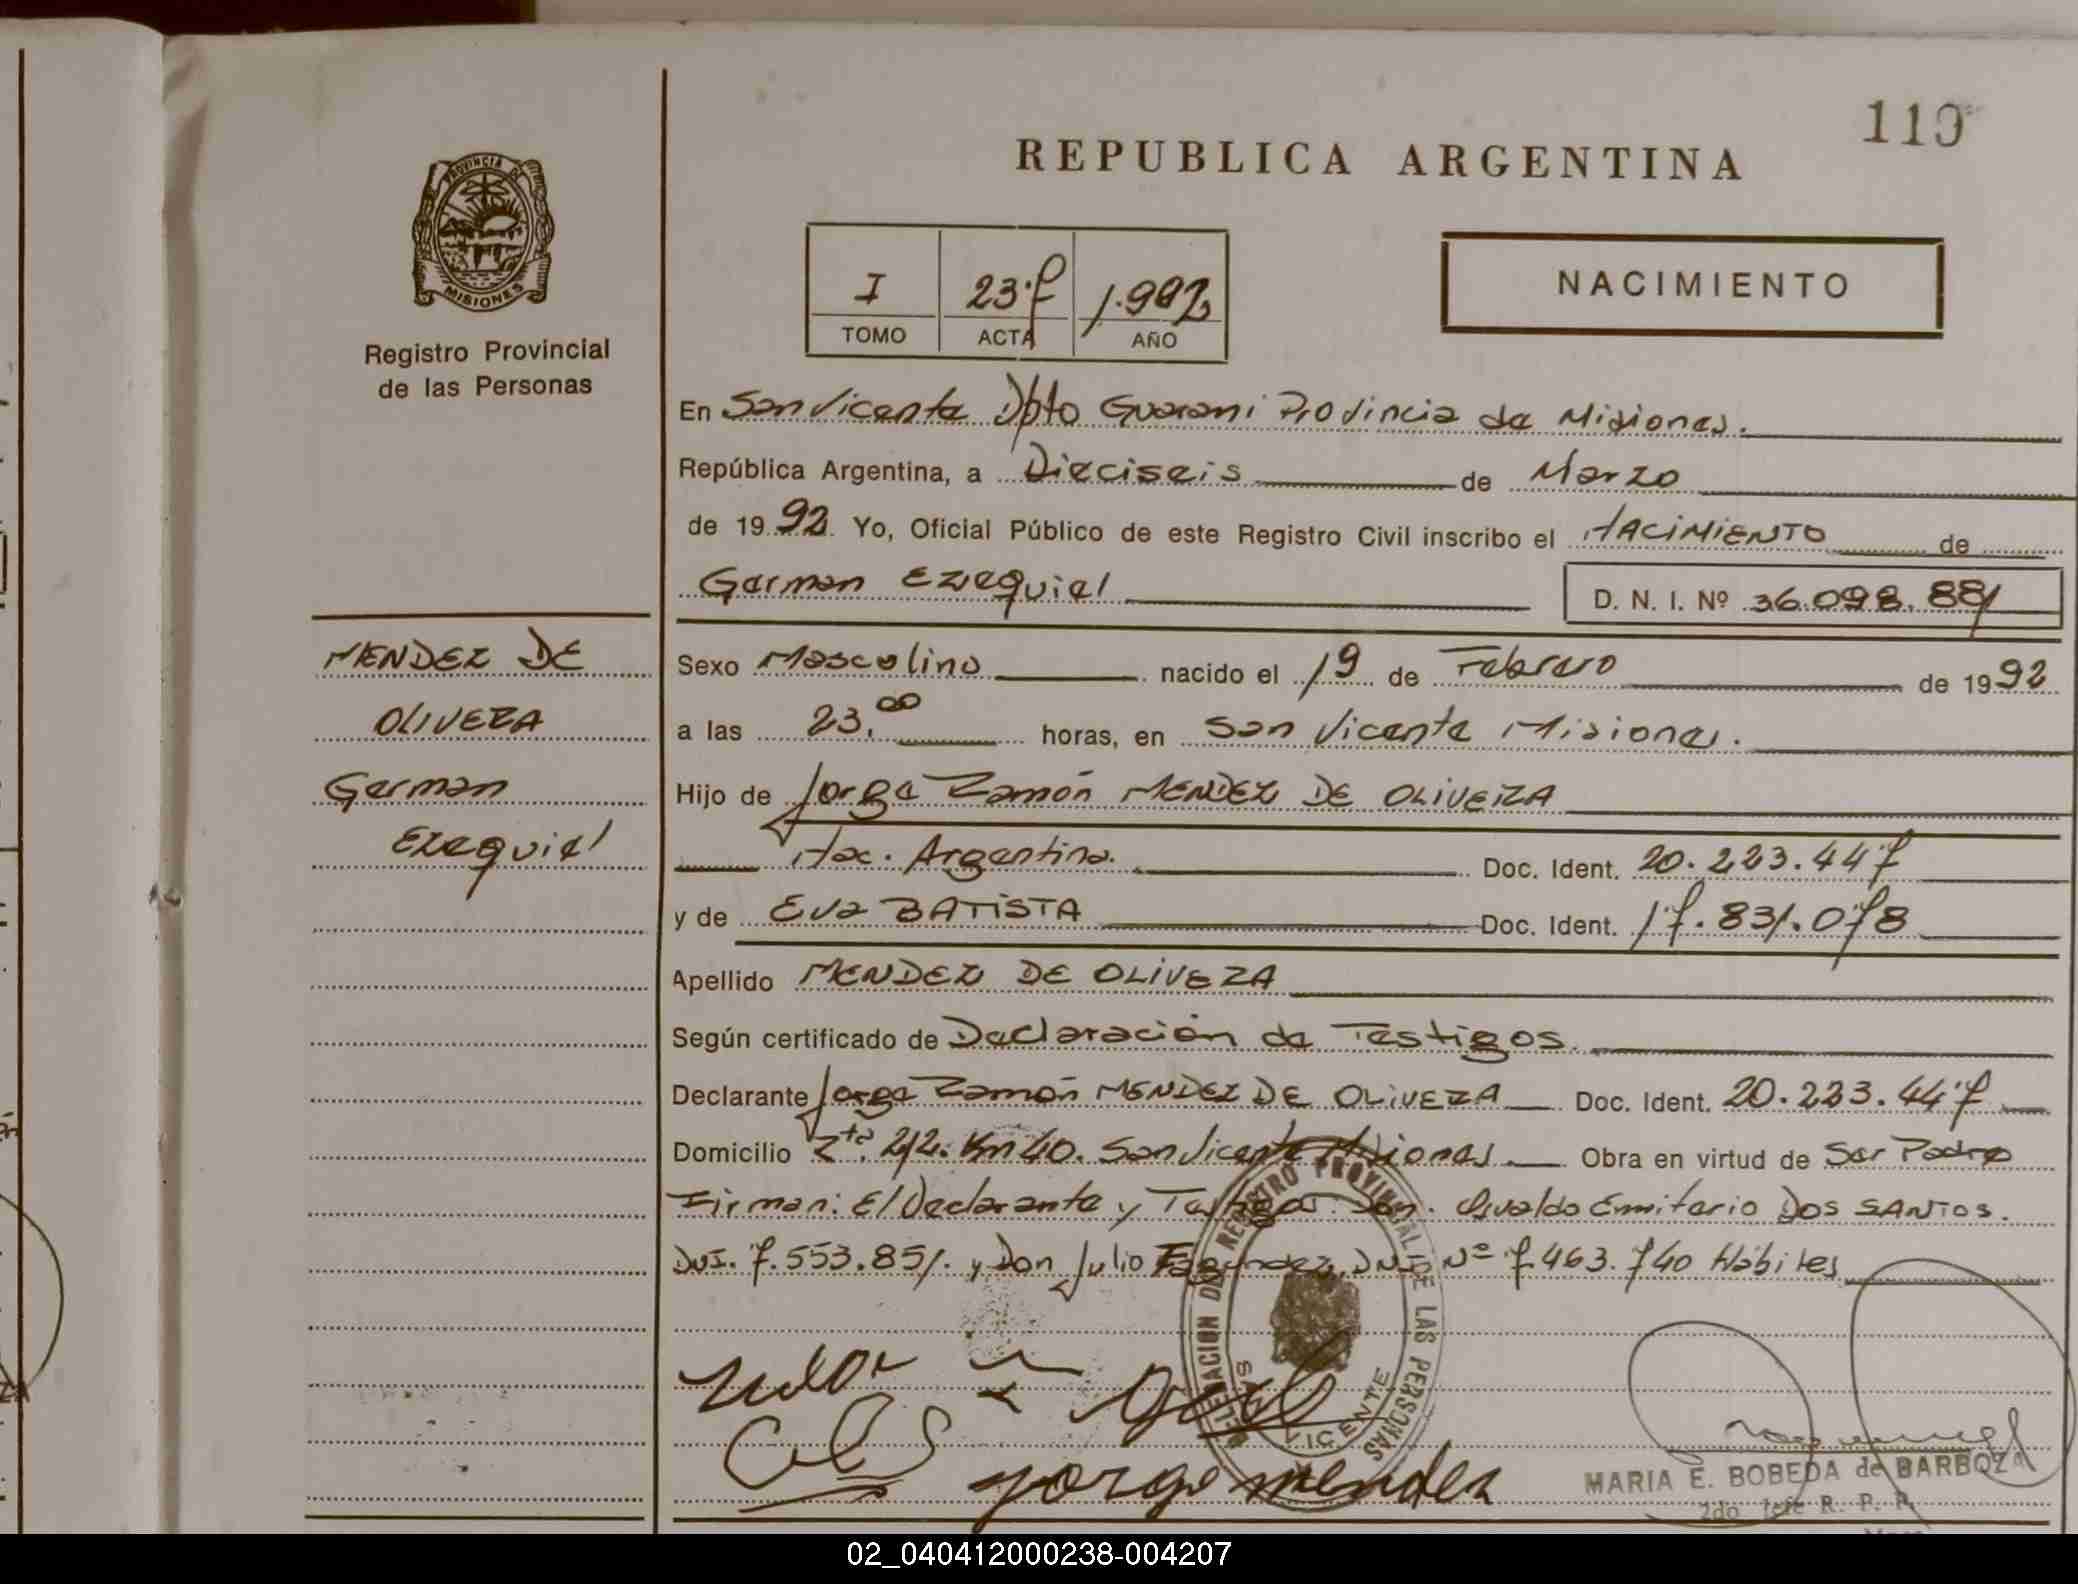 119
REPUBLICA ARGENTINA
PROVINCIA DE
MISIONES
Registro Provincial
de las Personas
I 237 1.992
TOMO ACTA AÑO
NACIMIENTO
En San Vicente Dpto Guarani Provincia de Misiones.
República Argentina, a Dieciseis de Marzo
de 1992 Yo, Oficial Público de este Registro Civil inscribo el NACIMIENTO de
German Ezequiel D. N. I. Nº 36.098.881
MENDEZ DE
OLIVERA
German
Ezequiel
Sexo Masculino nacido el 19 de Febrero de 1992
a las 23.00 horas, en San Vicente Misiones.
Hijo de Jorge Ramón MENDEZ DE OLIVEIRA
Nac. Argentina. Doc. Ident. 20.223.447
y de Eva BATISTA Doc. Ident. 17.831.078
Apellido MENDEZ DE OLIVERA
Según certificado de Declaración de Testigos.
Declarante Jorge Ramón MENDEZ DE OLIVERA Doc. Ident. 20.223.447
Domicilio Rta. 212. Km 40. San Vicente Misiones Obra en virtud de Ser Padre
Firman: El Declarante y Testigos. Don. Osvaldo Emiterio DOS SANTOS.
DNI. 7.553.851. y Don Julio Fagundez, DNI Nº 7.463.740 Hábiles
DELEGACION DEL REGISTRO PROVINCIAL DE LAS PERSONAS
VICENTE
jorge mendez
MARIA E. BOBEDA de BARBOZA
2do Jefe R. P. P.
02_040412000238-004207